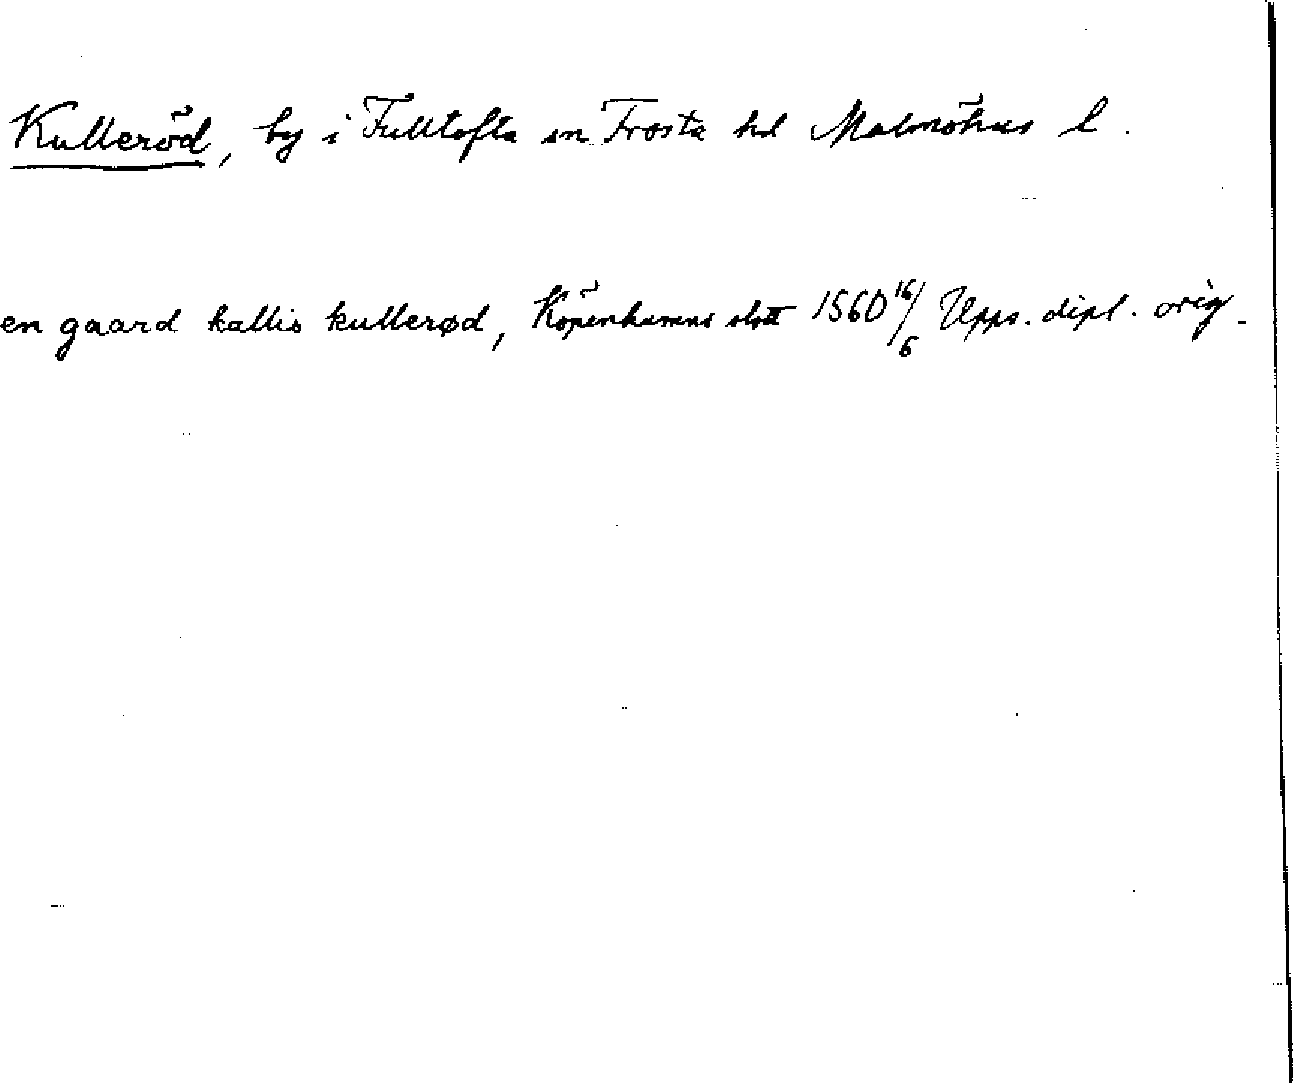 Kulleröd, by i Fulltofta sn Frosta hd Malmöhus l.
en gaard kallis kullerød, Köpenhamns slott 1560 16/6 Upps. dipl. orig.